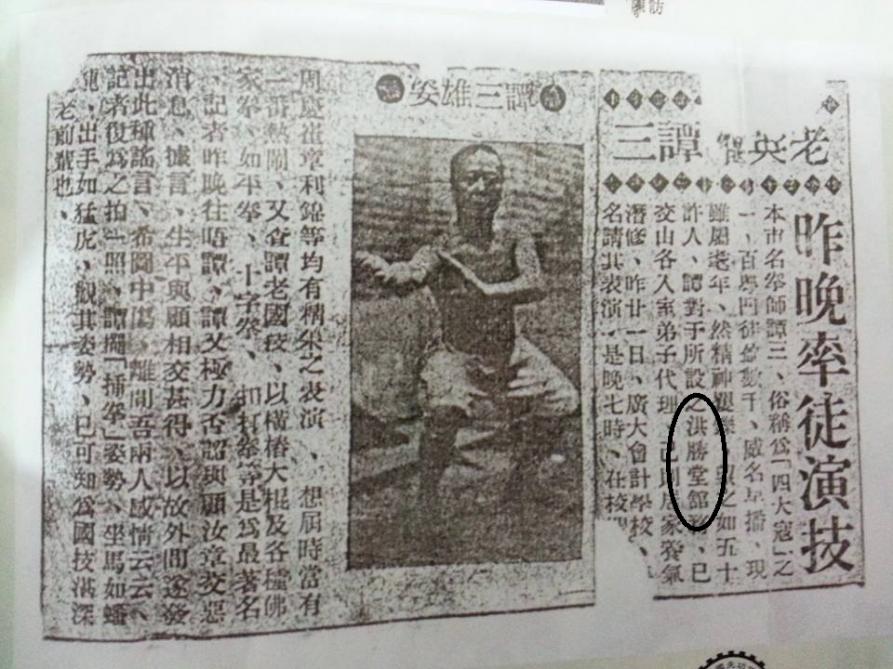 老英雄譚三
昨晚率徒演技
本市名拳師譚三、俗稱爲「四大寇」之
一、百粵門徒數千、威名早播、現
雖屬老年、然精神、望之如五十
許人、譚對于所設之洪勝堂館務、已
交由各入室弟子代理、己則居家養氣
潛修、昨廿一日、廣大會計學校、
名請其表演、是晚七時、在校
譚三雄姿
周慶崔章利錦等均有精采之表演、想屆時當有
一番熱鬧、又查譚老國技、以橫樁大棍及各種佛
家拳、如平拳、十字拳、扣打拳等是爲最著名
、記者昨晚往晤譚、譚又極力否認與顧汝章交惡
消息、據言、生平與顧相交甚得、以故外間遂發
出此種謠言、希圖中傷、離間吾兩人感情云云、
記者復爲之拍一照、譚開「插拳」姿勢、坐馬如蟠
龍、出手如猛虎、觀其姿勢、已可知爲國技湛深
老前輩也、